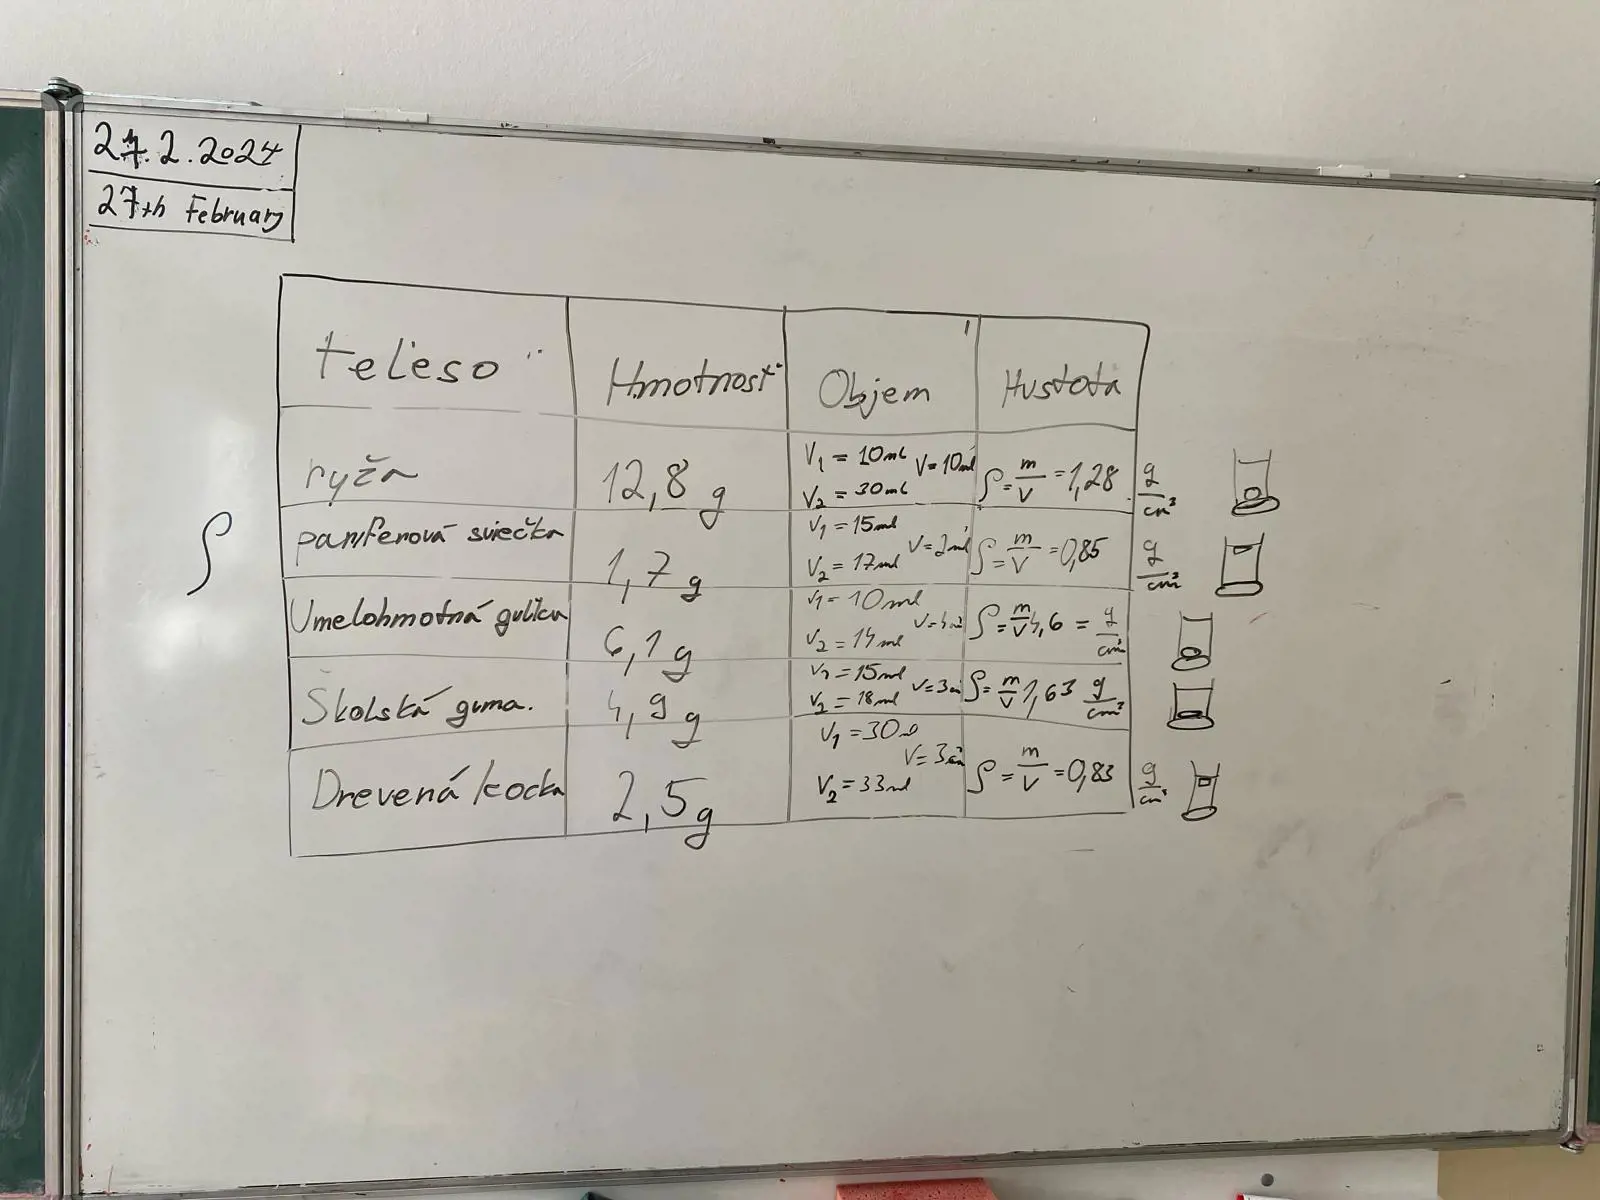 27.2.2024
27th February
teleso Hmotnosť Objem Hustota
ryža 12,8 g V₁ = 10ml V₂ = 30ml V=10ml ρ = m/V = 1,28 g/cm³
ρ
parferová sviečka 1,7 g V₁ = 15ml V₂ = 17ml V=2ml ρ = m/V = 0,85 g/cm³
Umelohmotná gulička 6,1 g V₁ = 10ml V₂ = 14ml ρ = m/V = g/cm³
Školská guma. 4,9 g V₁ = 15ml V₂ = 18ml ρ = m/V 1,63 g/cm³
Drevená kocka 2,5 g V₁ = 30 V₂ = 33ml ρ = m/V = 0,83 g/cm³